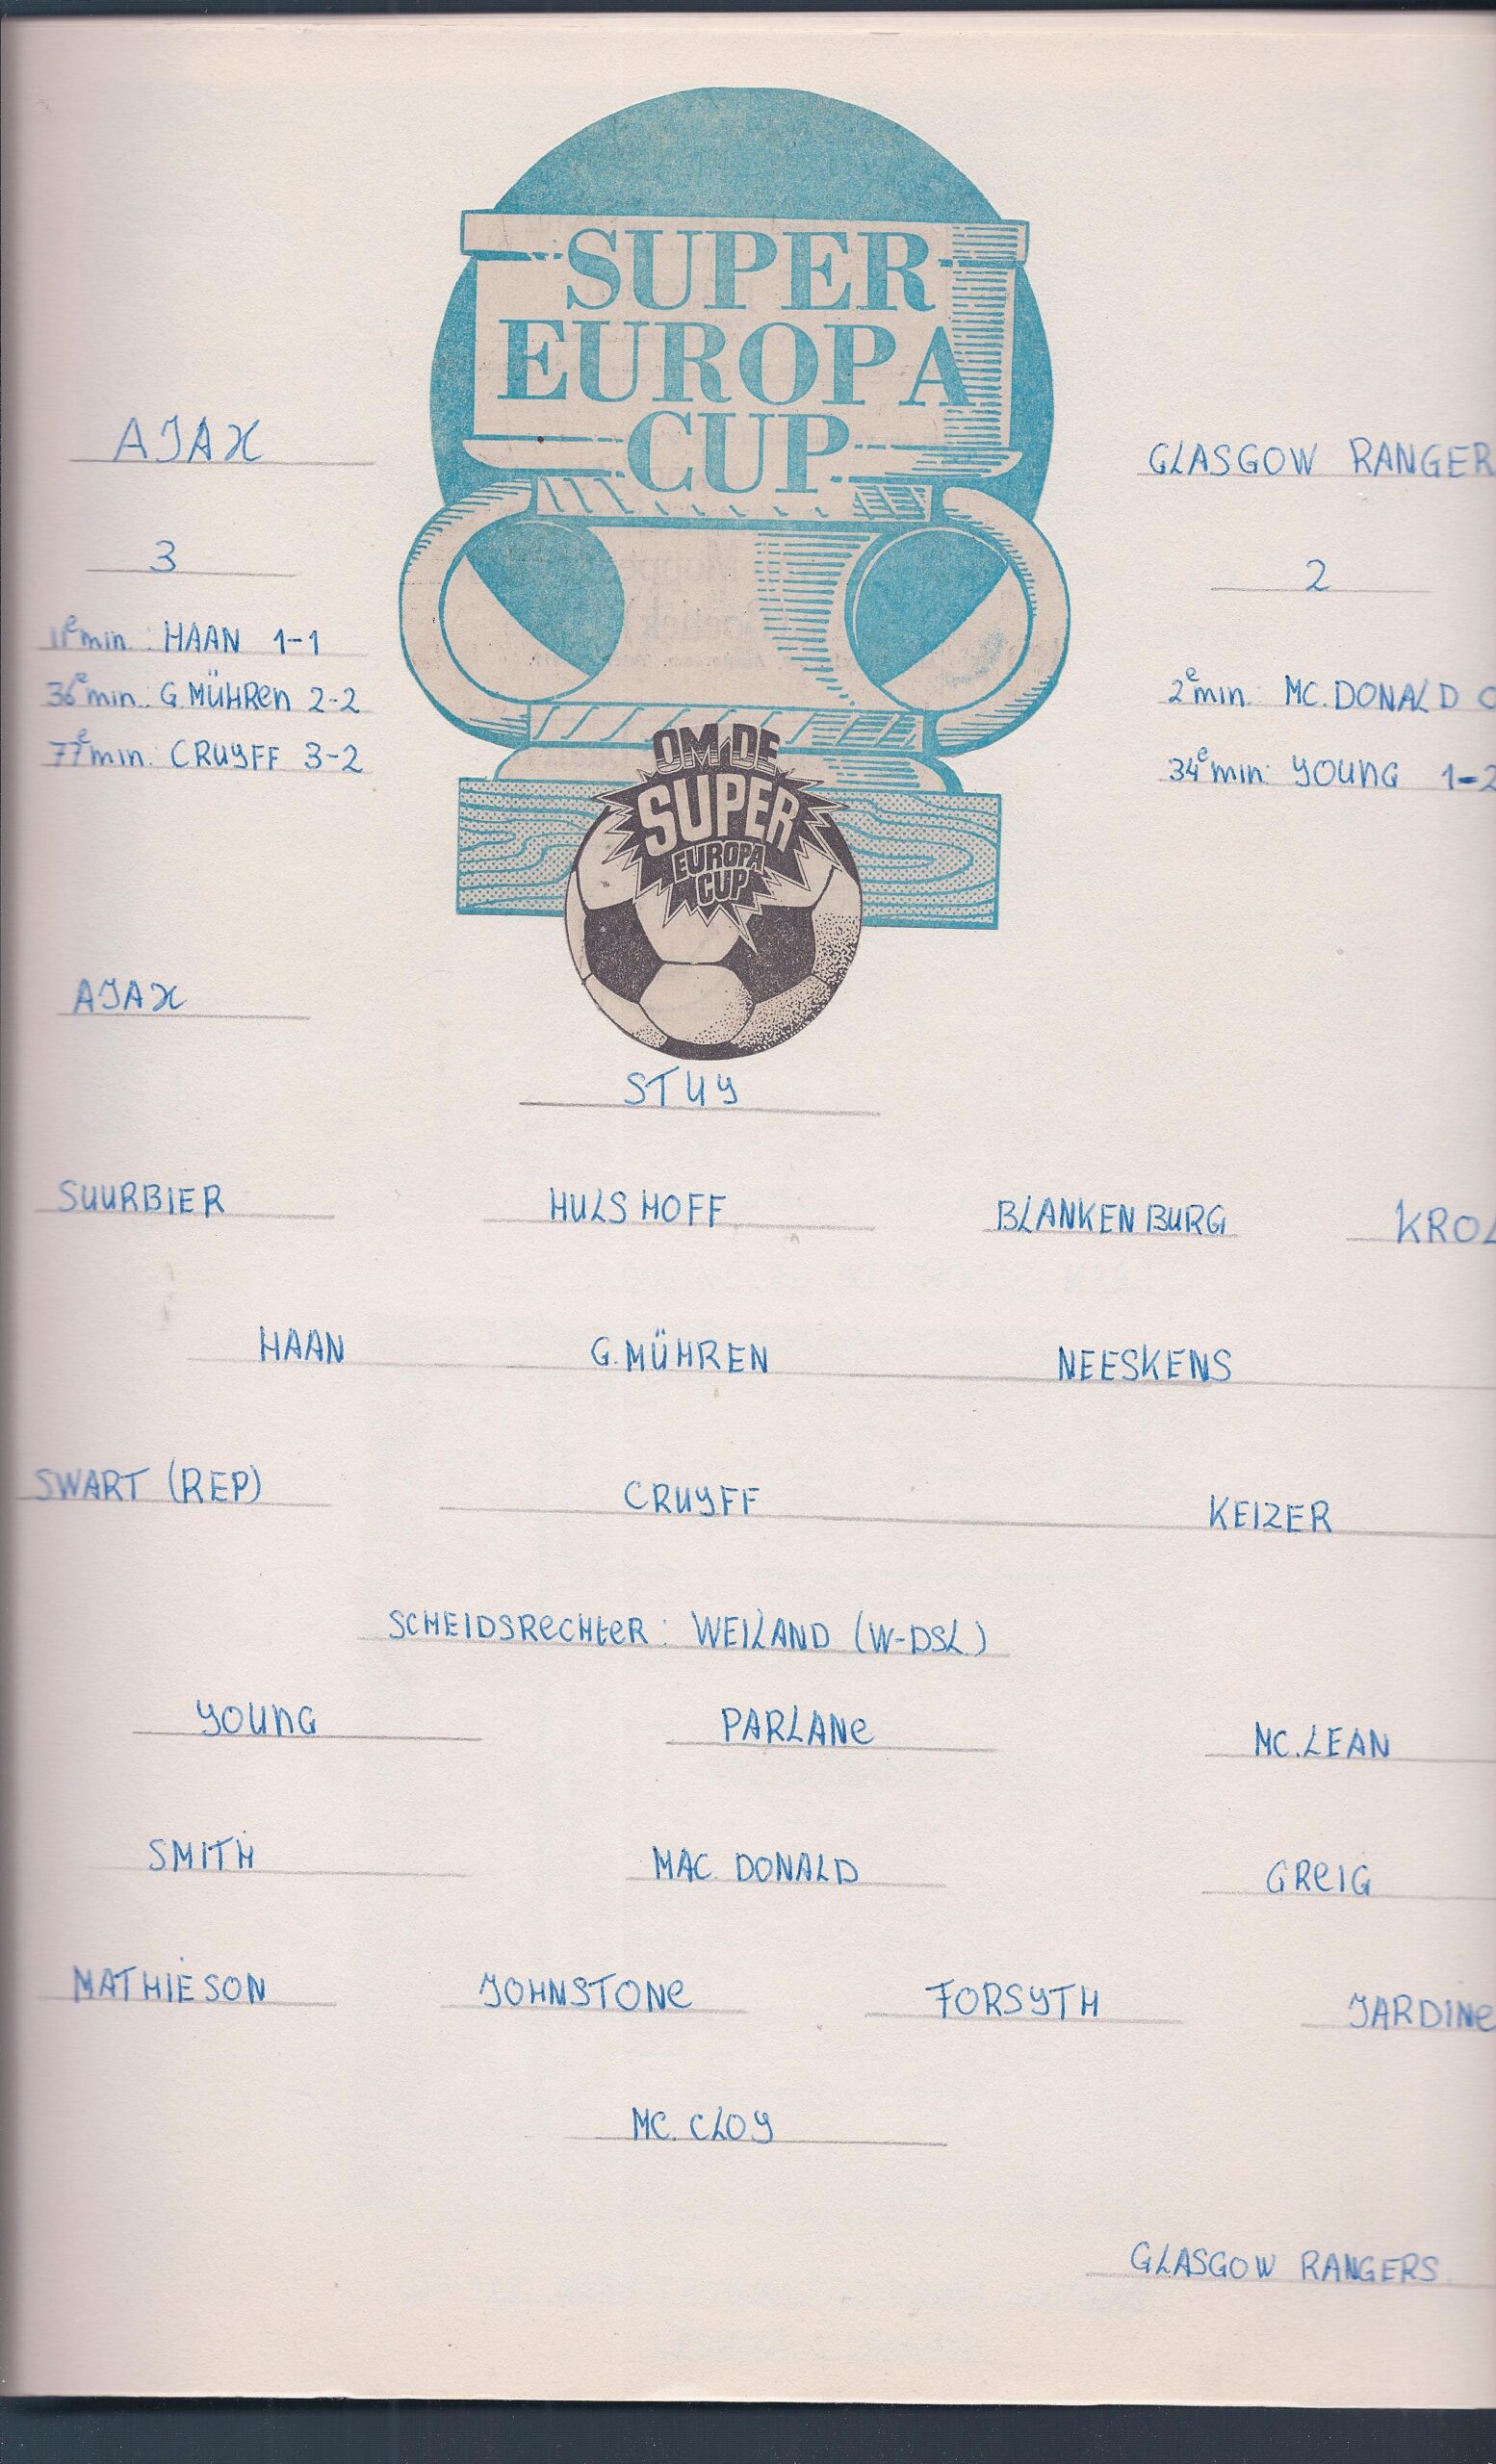 SUPER
EUROPA
CUP
AJAX
GLASGOW RANGER
3
2
11e min. : HAAN 1-1
36e min. : G. MÜHREN 2-2
2e min. : MC. DONALD
77e min. : CRUYFF 3-2
34e min: YOUNG 1-2
OM DE
SUPER
EUROPA
CUP
AJAX
STUY
SUURBIER HULSHOFF BLANKENBURG KROL
HAAN G. MÜHREN NEESKENS
SWART (REP) CRUYFF KEIZER
SCHEIDSRECHTER : WEILAND (W-DSL.)
YOUNG PARLANE MC. LEAN
SMITH MAC. DONALD GREIG
MATHIESON JOHNSTONE FORSYTH JARDINE
MC. CLOY
GLASGOW RANGERS